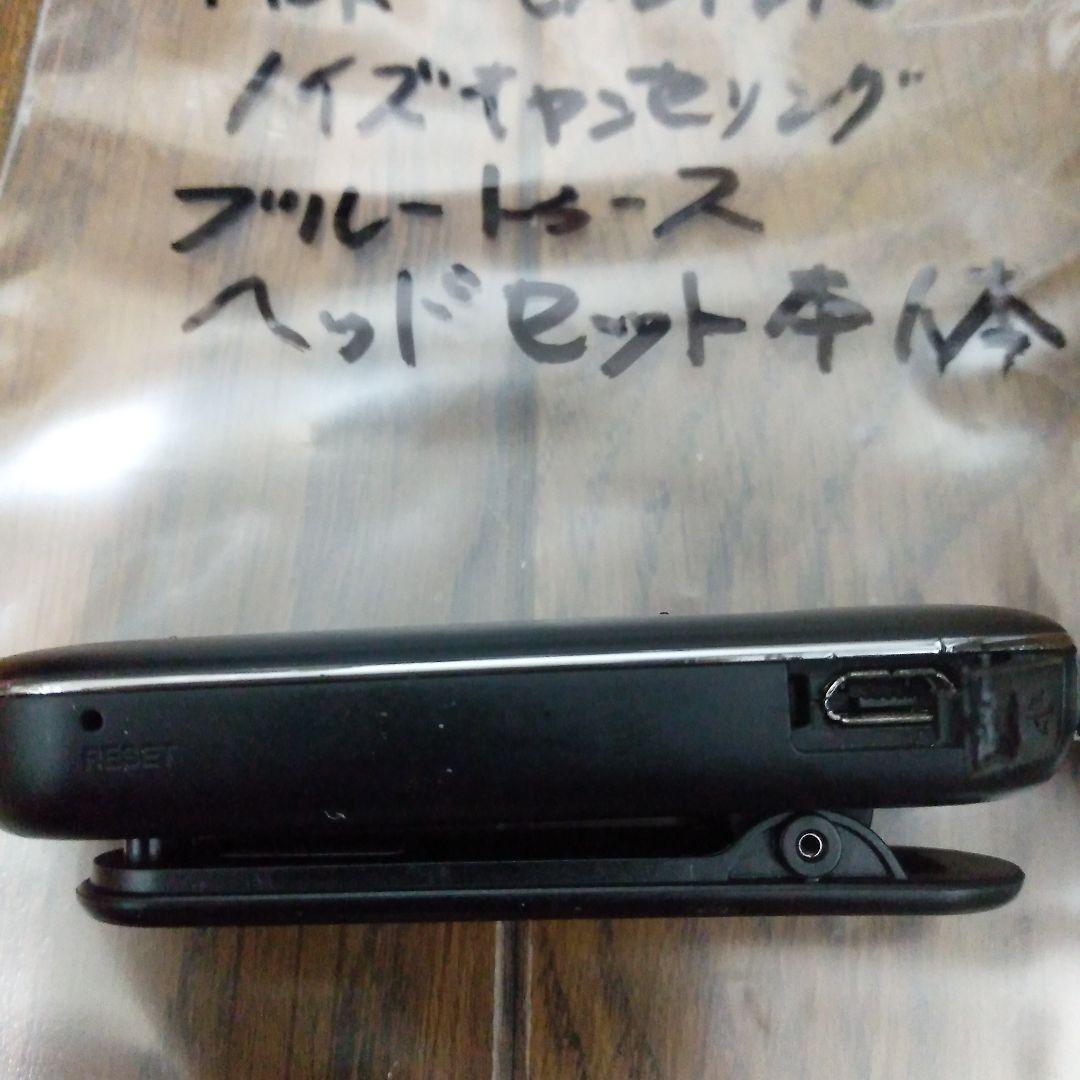 ノイズキャンセリング
ブルートゥース
ヘッドセット本体
RESET